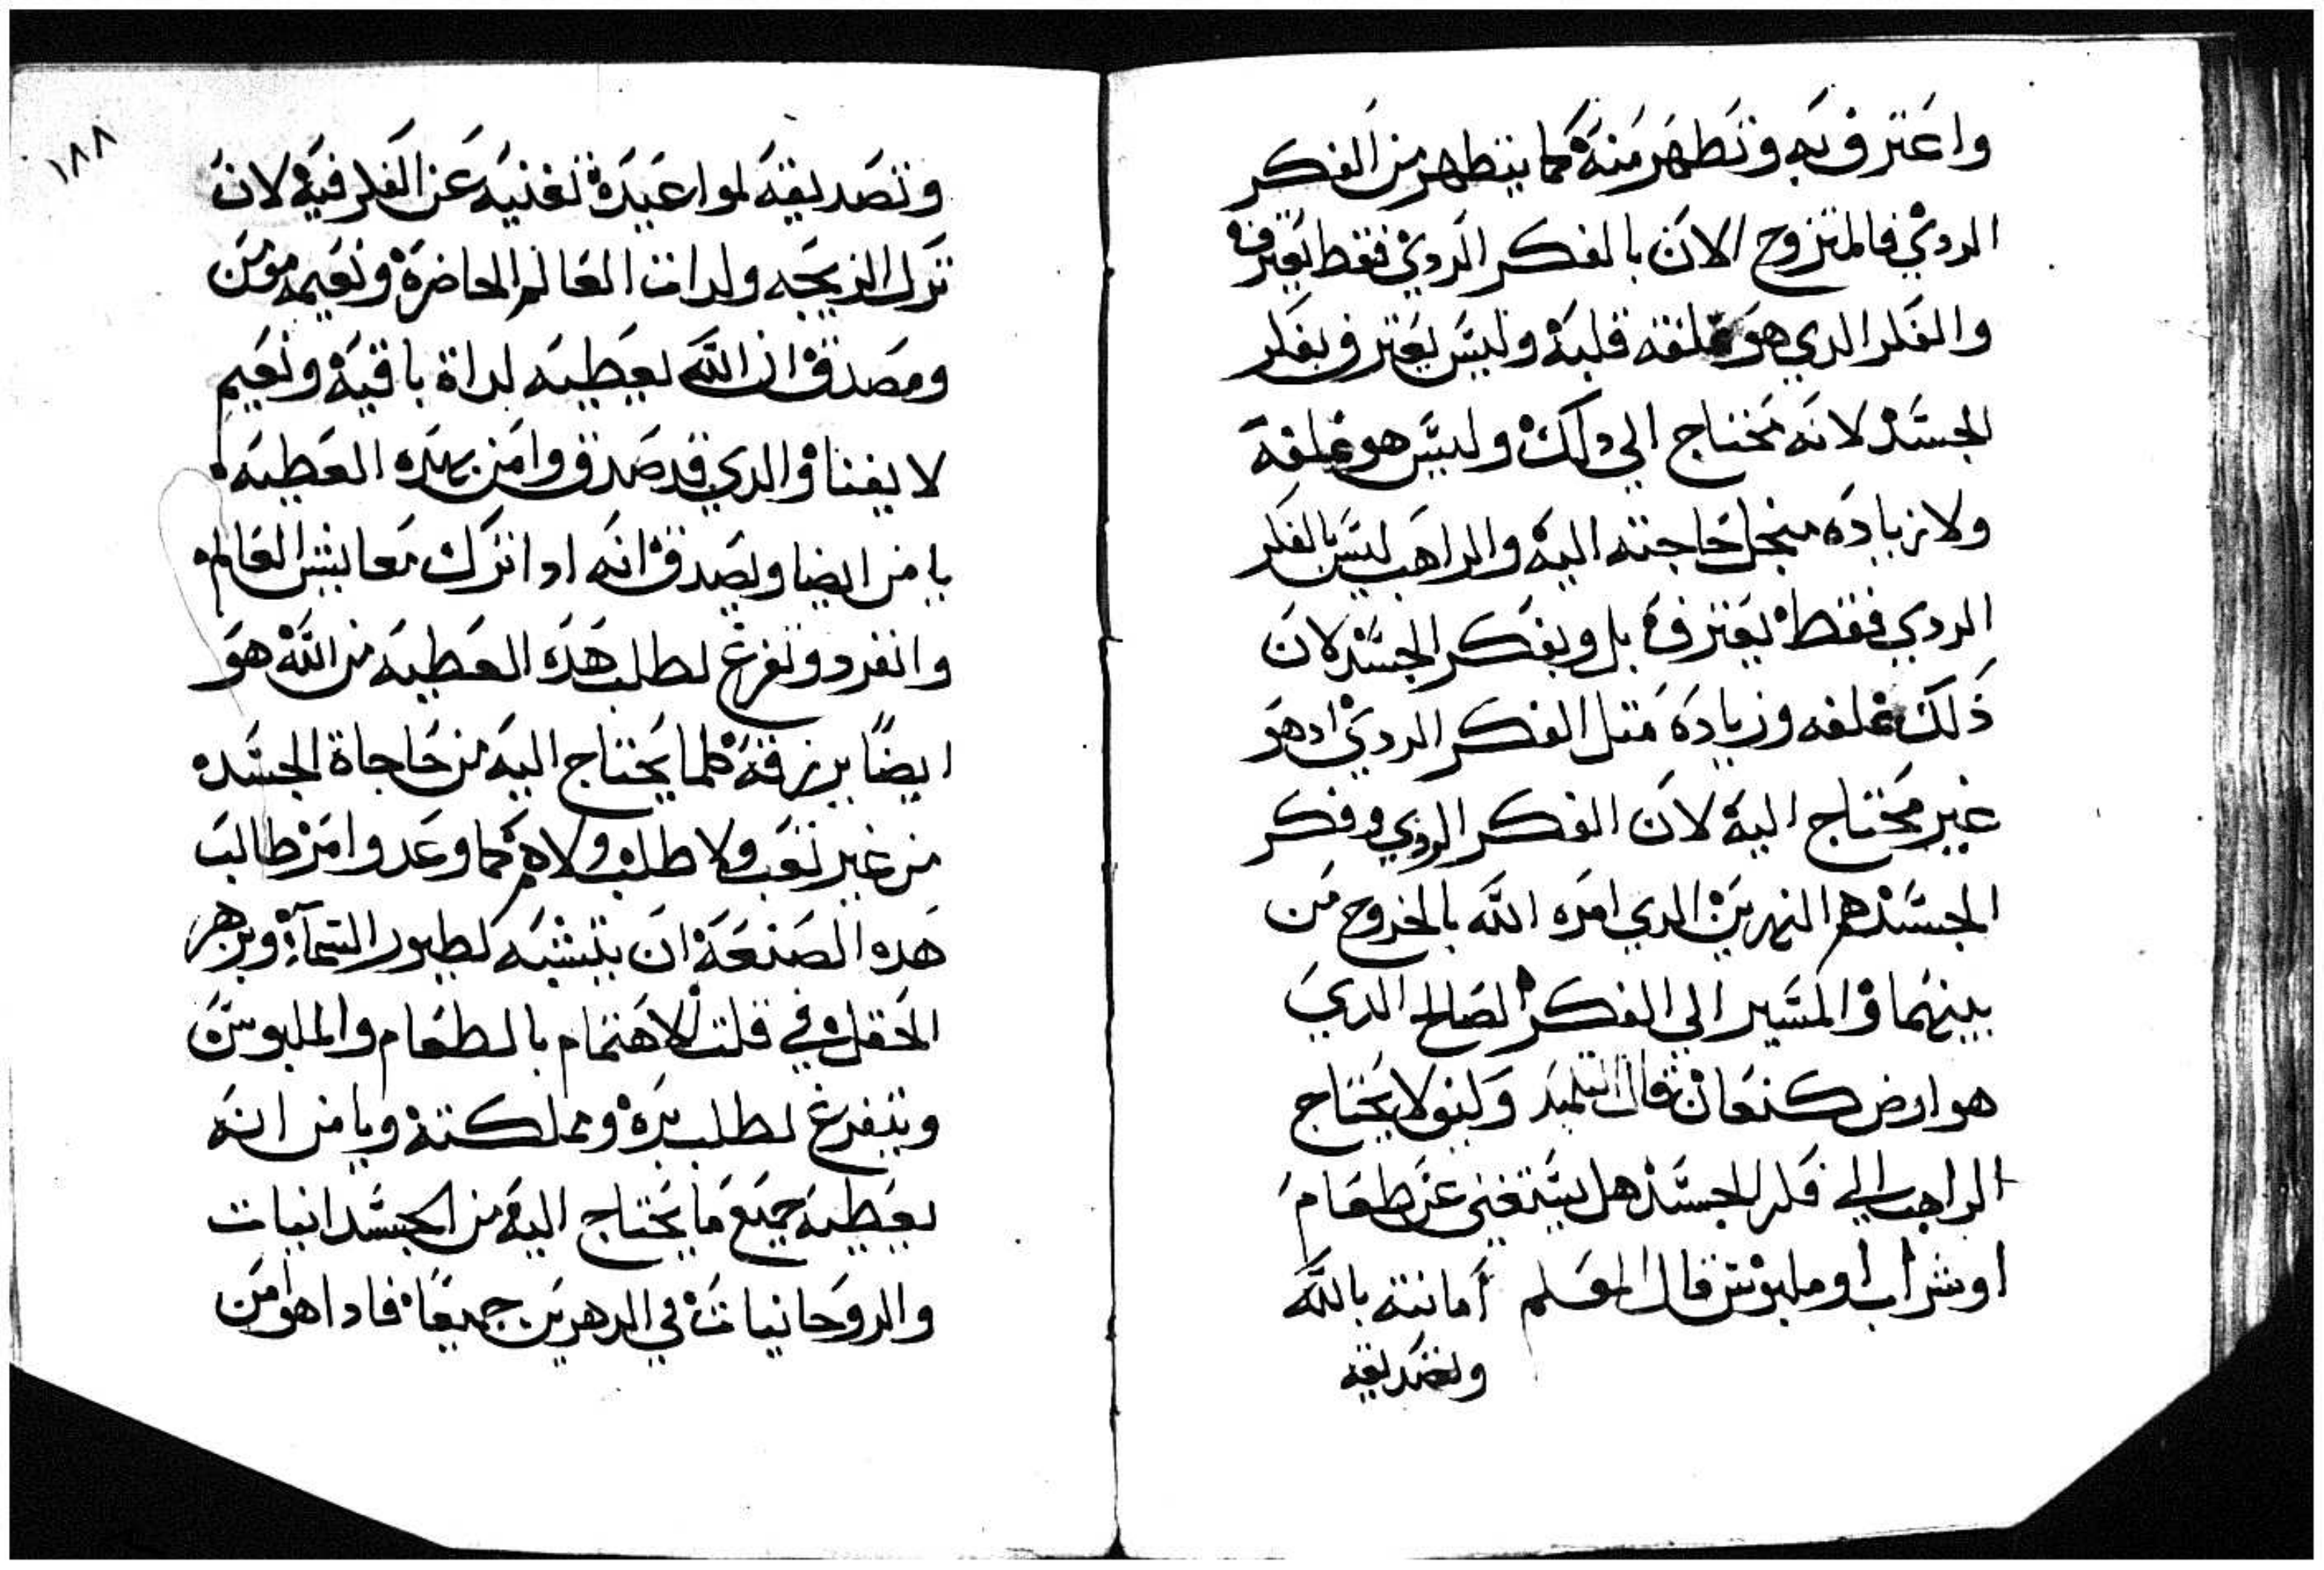 واعترف به وتطهر منه كما يتطهر من الفكر
الردي فالمتزوج الان بالفكر الردي فقط يعترف
والفكر الدي هو غلفة قلبه وليس يعترف بفكر
الجسد لانه محتاج الي دلك وليس هو غلفة
ولا زيادة منجل حاجته اليه والراهب ليس بالفكر
الردي فقط يعترف بل وبفكر الجسد لان
ذلك غلفه وزيادة متل الفكر الردي اد هو
غير محتاج اليه لان الفكر الردي وفكر
الجسد هم النهرين الدي امره الله بالخروج من
بينهما والمسير الي الفكر الصالح الدي
هو ارض كنعان قال التلميد وكيف لا يحتاج
الراهب الي فكر الجسد هل يستغني عن طعام
او شراب او ملبوس قال المعلم امانته بالله
وتصديقه
١٨٨
وتصديقه لمواعيده تغنيه عن الفكر فيه لان
ترك الزيجه ولدات العالم الحاضرة ونعيمه مومن
ومصدق ان الله يعطيه لداة باقية ونعيم
لا يفنا والدي قد صدق وامن بهده العطيه
يامن ايضا ويصدق انه ادا ترك معايش العالم
وانفرد وتفرغ لطلب هده العطيه من الله هو
ايضاً يرزقه كلما يحتاج اليه من حاجاة الجسد
من غير تعب ولا طلب ولا هم كما وعد وامر طالب
هده الصنعة ان يتشبه بطيور السمآء وبزهر
الحقل في قلت الاهتمام بالطعام والملبوس
ويتفرغ لطلب بره ومملكته ويامن انه
يعطيه جميع ما يحتاج اليه من الجسدانيات
والروحانيات في الدهرين جميعاً فادا هو امن